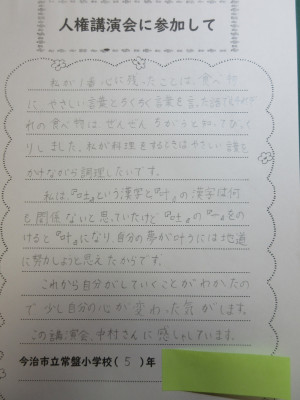 人権講演会に参加して
私が1番心に残ったことは、食べ物
にやさしい言葉とちくちく言葉を言った話でそれぞ
れの食べ物は、ぜんぜんちがうと知ってびっく
りしました。私が料理をするときはやさしい言葉を
かけながら調理したいです。
私は、『吐』という漢字と『叶』の漢字は何
も関係ないと思っていたけど『吐』の『一』をの
けると『叶』になり、自分の夢が叶うには地道
に努力しようと思えたからです。
これから自分がしていくことがわかったの
で少し自分の心が変わった気がします。
この講演会、中村さんに感しゃしています。
今治市立常盤小学校(5)年